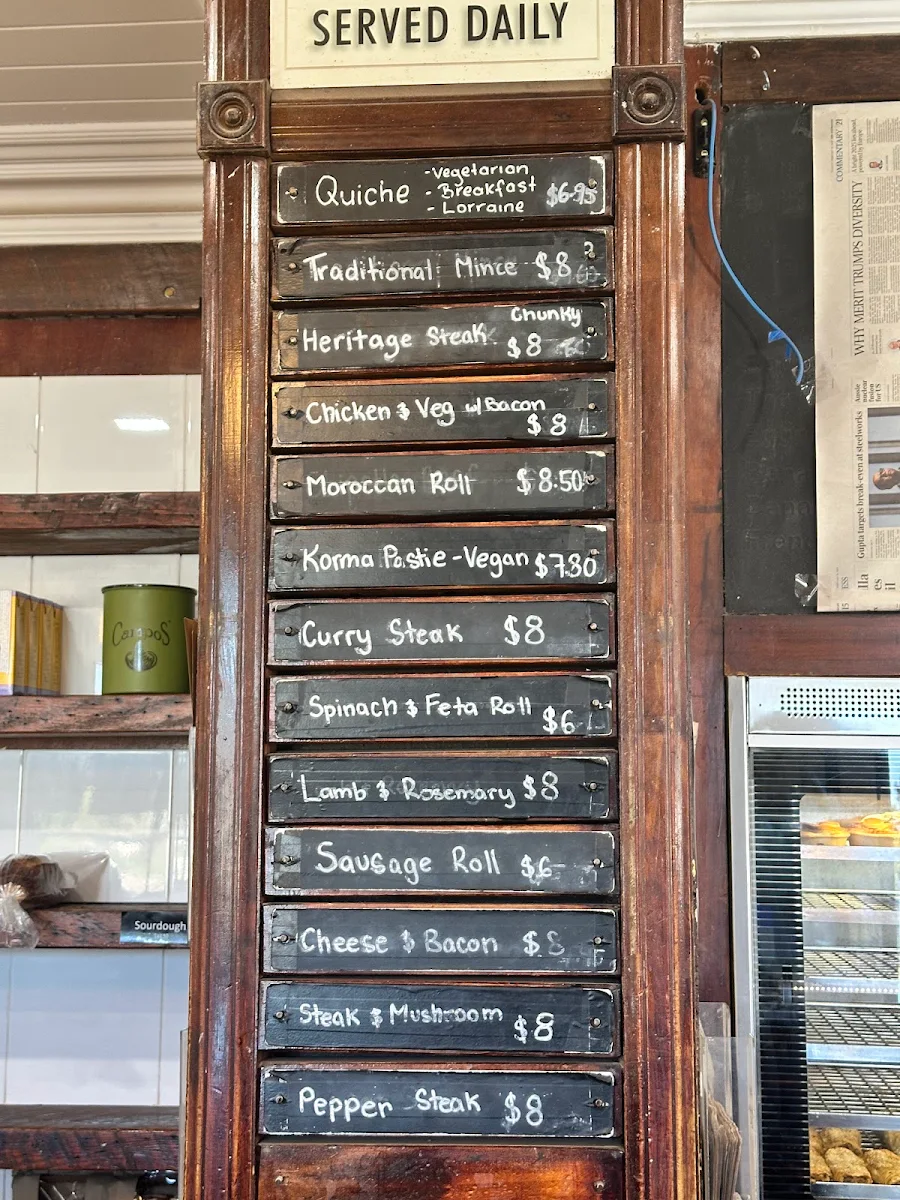 SERVED DAILY
Quiche
-Vegetarian
- Breakfast
- Lorraine
$6.95
Traditional Mince $8
Chunky
Heritage Steak
$8
Chicken & Veg w/Bacon
$8
Moroccan Roll $8.50
Korma Pastie -Vegan $7.80
Curry Steak $8
Spinach & Feta Roll $6
Lamb & Rosemary $8
Sausage Roll $6-
Cheese & Bacon $8
Steak & Mushroom $8
Pepper Steak $8
COMMENTARY
WHY MERIT TRUMPS DIVERSITY
Aussie nuclear fusion for US
Gupta targets break-even at steelworks
Campos
Sourdough